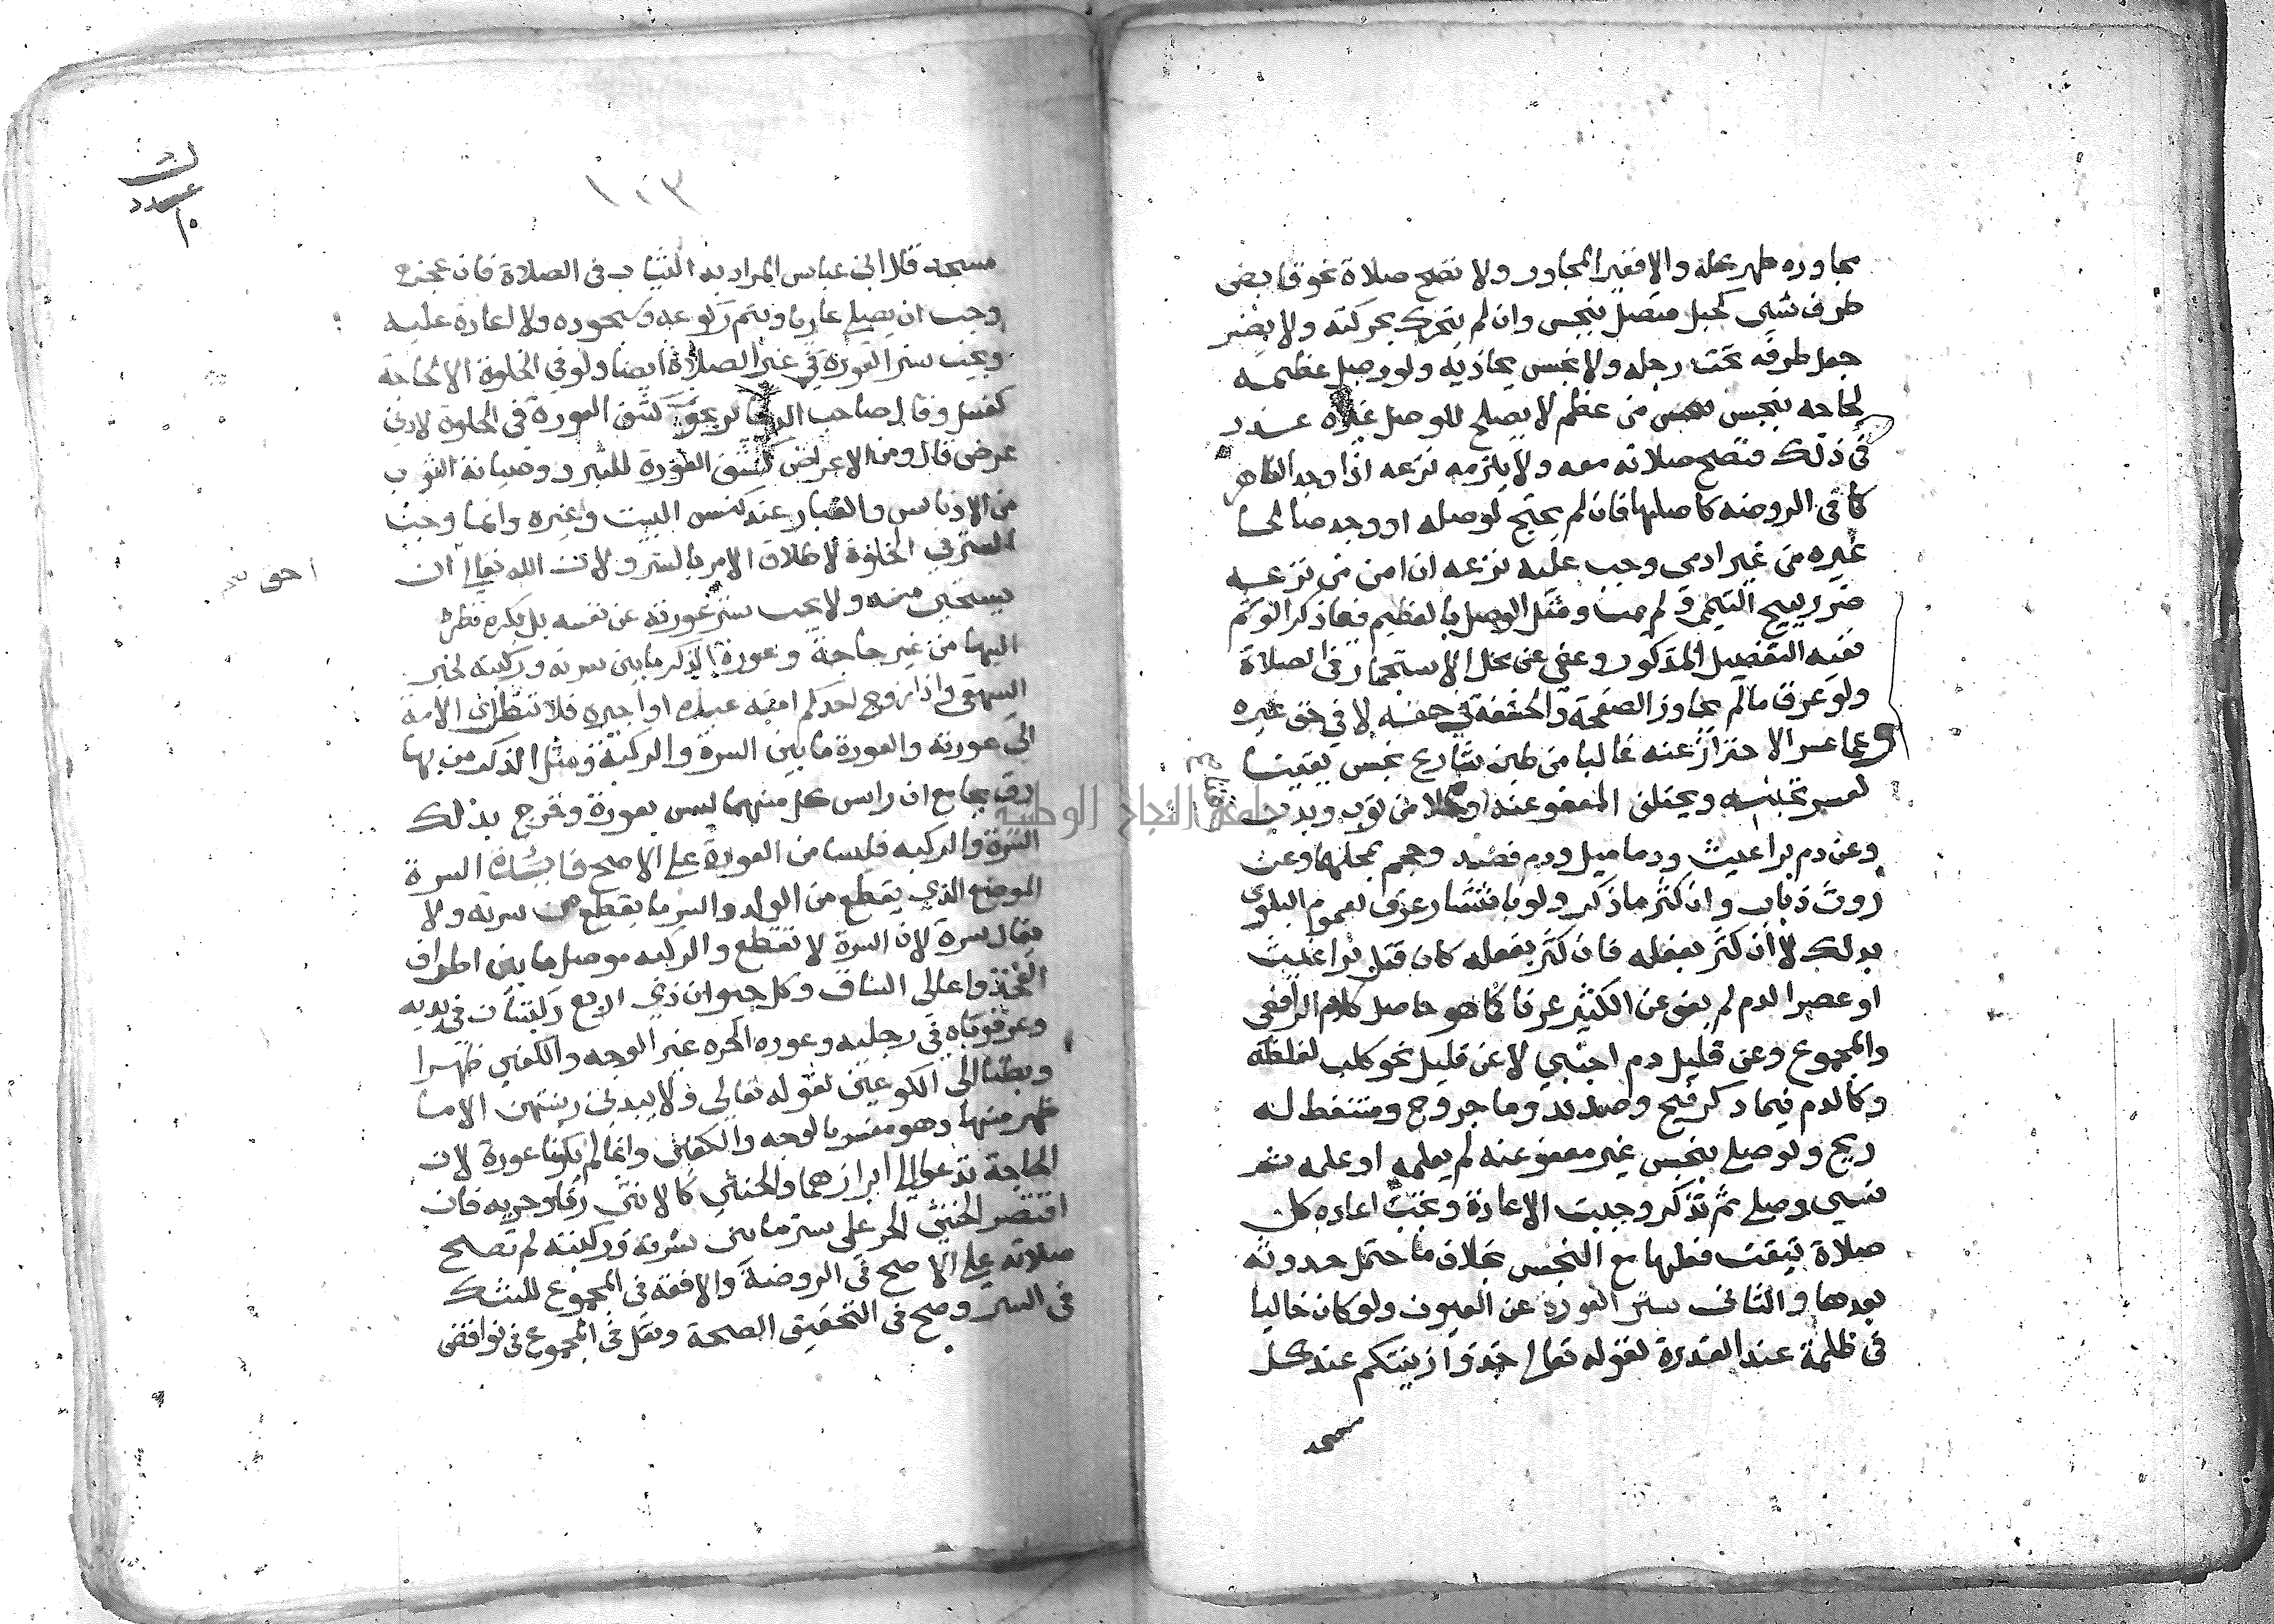 يجاوره طهر كله والا فغير المجاور ولا تصح صلاة نحو قابض
طرف شيء كحبل متصل بنجس وان لم يتحرك بحركته ولا يضر
جعل طرفه تحت رجله ولا نجس يحاذيه ولو وصل عظمه
لحاجة بنجس من عظم لا يصلح للوصل غيره عذر
في ذلك فتصح صلاته معه ولا يلزمه نزعه اذا وجد الطاهر
كما في الروضة كاصلها فان لم يحتج لوصله او وجد صالحا
غيره من غير ادمي وجب عليه نزعه ان امن من نزعه
ضررا يبيح التيمم ولم يمت ومثل الوصل بالعظم فيما ذكر الوشم
ففيه التفصيل المذكور وعفي عن محل الاستجمار في الصلاة
ولو عرق ما لم يجاوز الصفحة والحشفة في حقه لا في حق غيره
وعما عسر الاحتراز عنه غالبا من طين شارع نجس يقينا
لعسر تجنبه ويختلف المعفو عنه وقتا ومحلا من ثوب وبدن
وعن دم براغيث ودماميل ودم فصد وحجم بمحلهما وعن
روث ذباب وان كثر ما ذكر ولو بانتشار عرق لعموم البلوى
بذلك لا ان كثر بفعله فان كثر بفعله كان قتل براغيث
او عصر الدم لم يعف عن الكثير عرفا كما هو حاصل كلام الرافعي
والمجموع وعن قليل دم اجنبي لا عن قليل نحو كلب لغلظه
وكالدم فيما ذكر قيح وصديد وماء جروح ومتنفط له
ريح ولو صلى بنجس غير معفو عنه لم يعلمه او علمه ثم
نسي وصلى ثم تذكر وجبت الاعادة وتجب اعادة كل
صلاة تيقن فعلها مع النجس بخلاف ما احتمل حدوثه
بعدها والثاني ستر العورة عن العيون ولو كان خاليا
في ظلمة عند القدرة لقوله تعالى خذوا زينتكم عند كل
مسجد
١٠٣
عدد
١٠
مسجد قال ابن عباس المراد به الثياب في الصلاة فان عجز
وجب ان يصلي عاريا ويتم ركوعه وسجوده ولا اعادة عليه
ويجب ستر العورة في غير الصلاة ايضا ولو في الخلوة الا لحاجة
كغسل وقال صاحب الذخائر يجوز كشف العورة في الخلوة لادنى
غرض قال ومن الاغراض كشف العورة للتبرد وصيانة الثوب
من الادناس والغبار عند كنس البيت وغيره وانما وجب
الستر في الخلوة لاطلاق الامر بالستر ولان الله تعالى ان
احق
يستحيى منه ولا يجب ستر عورته عن نفسه بل يكره نظره
اليها من غير حاجة وعورة الذكر ما بين سرته وركبته لخبر
البيهقي واذا زوج احدكم امته عبده او اجيره فلا تنظر الامة
الى عورته والعورة ما بين السرة والركبة ومثل الذكر من بها
رق بجامع ان راس كل منهما ليس بعورة وخرج بذلك
السرة والركبة فليسا من العورة على الاصح فائدة السرة
الموضع الذي يقطع من الولد والسر ما يقطع من سرته ولا
يقال سرة لان السرة لا تقطع والركبة موصل ما بين اطراف
الفخذ واعالي الساق وكل حيوان ذي اربع ركبتان في يديه
وعرقوباه في رجليه وعورة الحرة غير الوجه والكفين ظهرا
وبطنا الى الكوعين لقوله تعالى ولا يبدين زينتهن الا ما
ظهر منها وهو مفسر بالوجه والكفين وانما لم يكونا عورة لان
الحاجة تدعو الى ابرازهما والخنثى كالانثى رقا وحرية فان
اقتصر الخنثى الحر على ستر ما بين سرته وركبته لم تصح
صلاته على الاصح في الروضة والافقه في المجموع للشك
في الستر وصح في التحقيق الصحة ونقل في المجموع في نواقض
جامعة النجاح الوطنية